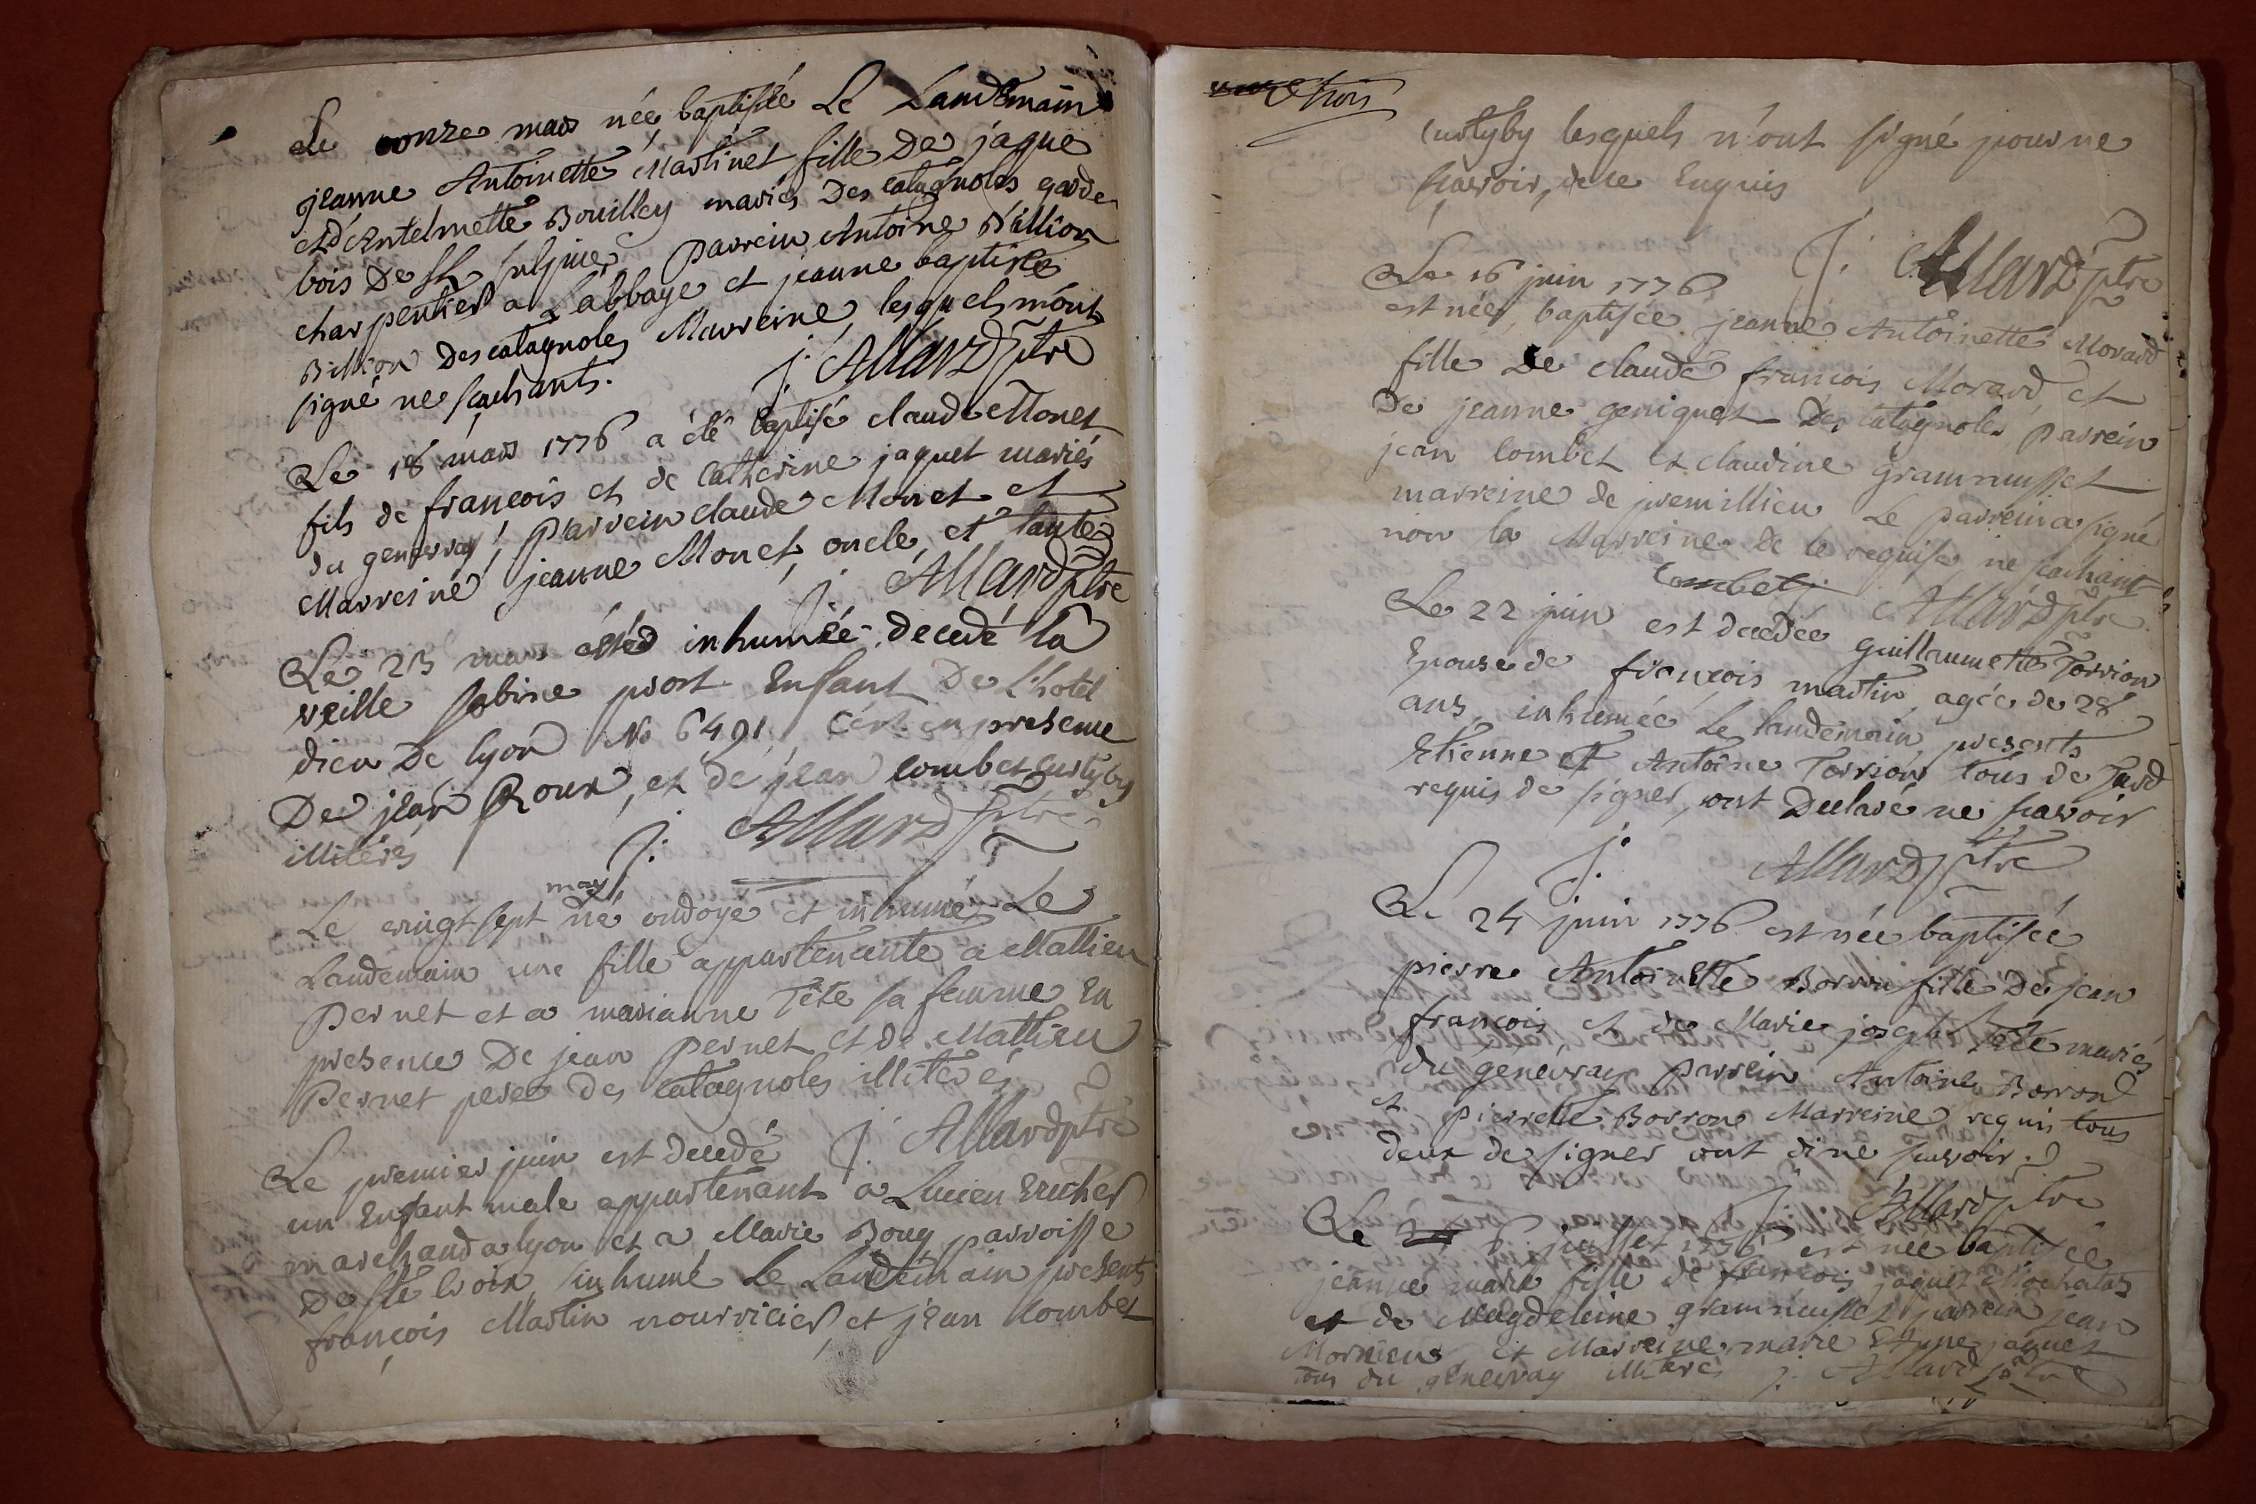 Le onze mars née baptisée Le Landemain
jeanne Antoinette Martinet fille De jaque
et d'Antelmette Bouilley mariés Des catagnoles garde
bois De St Sulpice, parrein Antoine Billion
charpentier a L'abbaye et jeanne baptiste
Billion des catagnoles Marreine lesquels n'ont
signé ne sachants. j: Allard ptre
Le 18 mars 1776 a été baptisé claude Monet
fils de françois et de catherine jaquet mariés
du genevray, parrein claude Monet et
Marreine jeanne Monet, oncle et tante
j. Allard ptre
Le 23 mars inhumée decedé la
veille sabine prost Enfant De L'hotel
dieu De lyon No 6491 C'est en presence
De jean Roux, et de jean combet Custyby
illiterés j: Allard ptre
may
Le vingt sept né ondoyé et inhumé Le
Landemain une fille appartenante a Mathieu
Pernet et a marianne Tête sa femme En
presence De jean Pernet et de Mathieu
Pernet pere des catagnoles illiterés
j. Allard ptre
Le premier juin est decedé
un Enfant male appartenant a Lucien
marchand a lyon et a Marie Bouy parroisse
De Ste croix, inhumé Le Landemain presents
françois Martin nourricier, et jean Combet
trois
Custyby lesquels n'ont signé pour ne
savoir, de ce Enquis
j: Allard ptre
Le 16 juin 1776
est née, baptisée jeanne Antoinette Morard
fille De claude françois Morard et
De jeanne geniquet Des catagnoles parrein
jean Combet et claudine grammusset
marreine de premillieu Le parrein a signé
non la Marreine de ce requise ne sachant
Combet j Allard ptre
Le 22 juin est decedée guillaumette Torrion
Epouse de françois martin agée de 28
ans, inhumée Le landemain, presents
Etienne et Antoine Torrion tous de
requis de signer, ont Declaré ne savoir
j: Allard ptre
Le 24 juin 1776 est née baptisée
pierre Antoinette Borron fille De jean
françois et de Marie joseph Tête mariés
du genevray parrein Antoine Borron
et pierrette Borron Marreine requis tous
deux de signer ont dine savoir.
j. Allard ptre
Le 6 juillet 1776 est née baptisée
jeanne marie fille de françois jaquet
et de Magdeleine grammusset parrein jean
et Marreine marie Etienne jaquet
tous du genevray illiterés j. Allard ptre